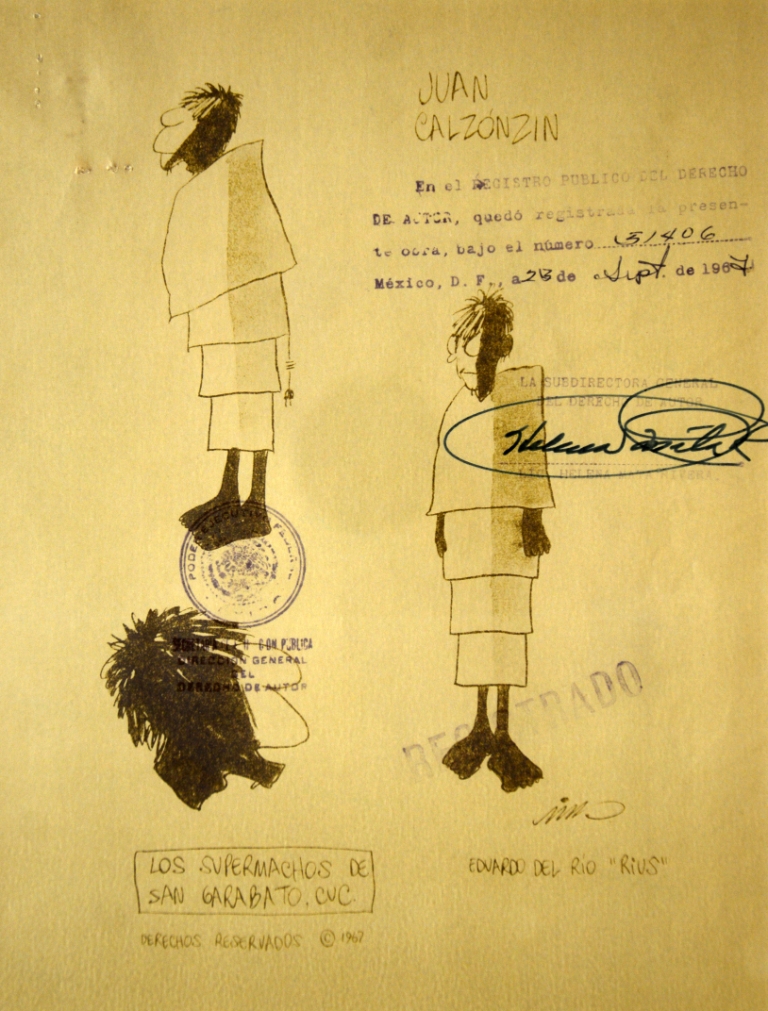 JUAN
CALZÓNZIN
En el REGISTRO PUBLICO DEL DERECHO
DE AUTOR, quedó registrada la presen-
te obra, bajo el número 51406
México, D. F., a 23 de Sept. de 1967
LA SUBDIRECTORA GENERAL
DEL DERECHO DE AUTOR
PODER EJECUTIVO FEDERAL
SECRETARIA DE EDUCACION PUBLICA
DIRECCION GENERAL
DEL
DERECHO DE AUTOR
REGISTRADO
LOS SUPERMACHOS DE
SAN GARABATO, CUC.
EDUARDO DEL RÍO "RIUS"
DERECHOS RESERVADOS © 1967